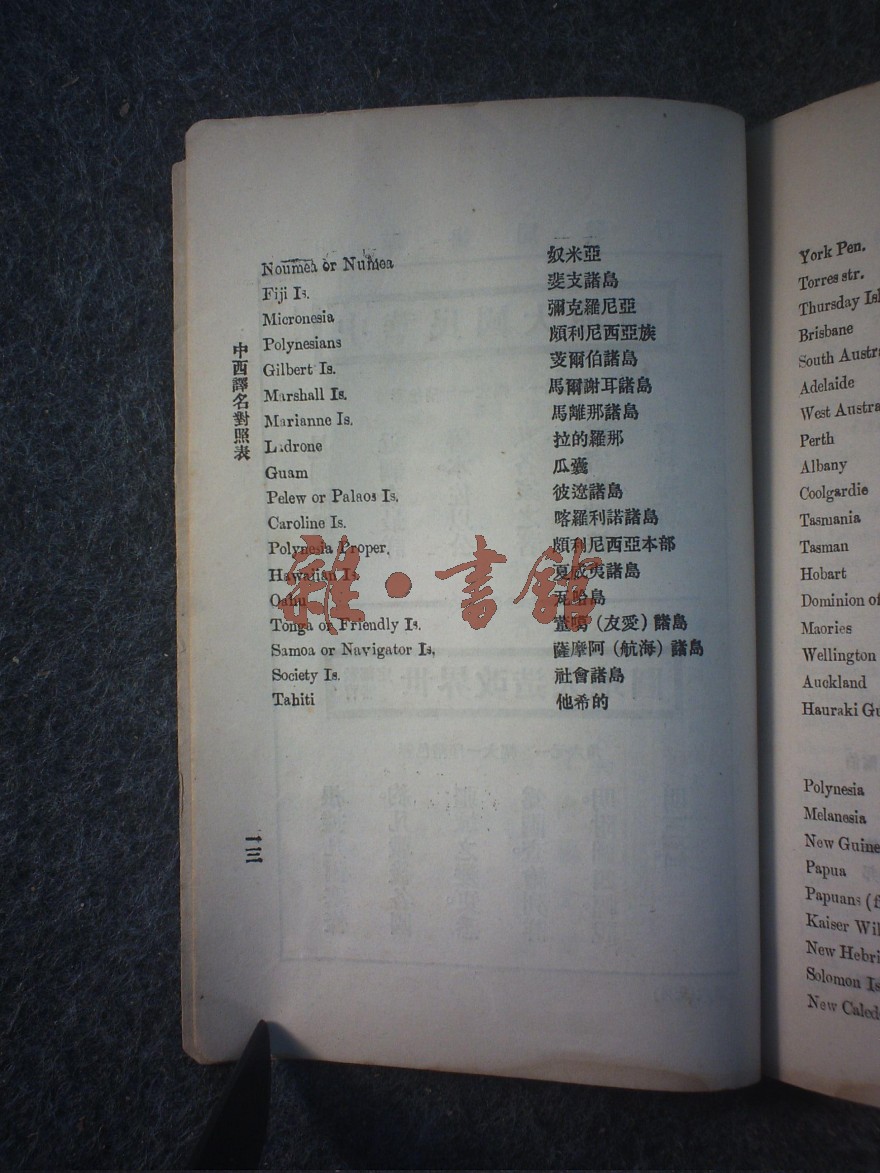 中西譯名對照表
Noumea or Numea 奴米亞
Fiji Is. 斐支諸島
Micronesia 彌克羅尼亞
Polynesians 頗利尼西亞族
Gilbert Is. 芰爾伯諸島
Marshall Is. 馬爾謝耳諸島
Marianne Is. 馬離那諸島
Ladrone 拉的羅那
Guam 瓜囊
Pelew or Palaos Is. 彼遼諸島
Caroline Is. 喀羅利諾諸島
Polynesia Proper. 頗利尼西亞本部
Hawaiian Is. 夏威夷諸島
Oahu 瓦哈島
Tonga or Friendly Is. 董噶(友愛)諸島
Samoa or Navigator Is. 薩摩阿(航海)諸島
Society Is. 社會諸島
Tahiti 他希的
雜·書館
York Pen.
Torres str.
Thursday Isl
Brisbane
South Austra
Adelaide
West Austra
Perth
Albany
Coolgardie
Tasmania
Tasman
Hobart
Dominion of
Maories
Wellington
Auckland
Hauraki Gu
Polynesia
Melanesia
New Guine
Papua
Papuans (f
Kaiser Wil
New Hebri
Solomon Is
New Caled